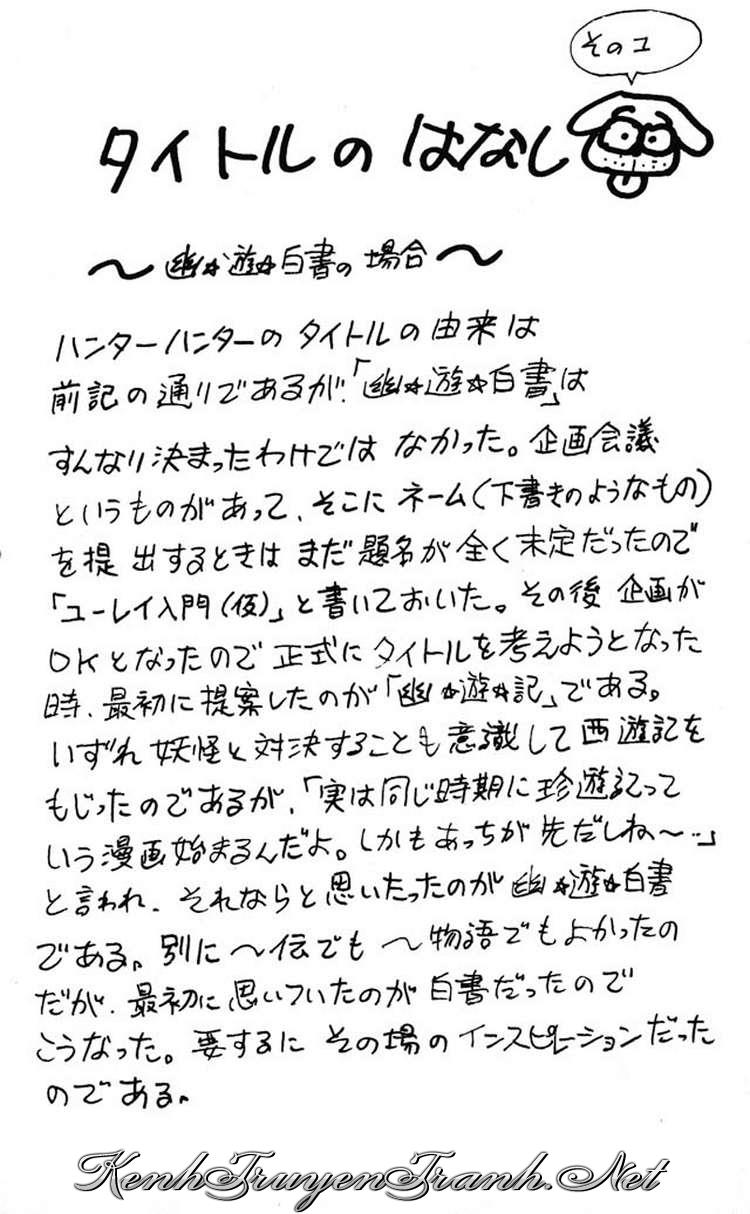 その2
タイトルの はなし
〜幽☆遊☆白書の 場合〜
ハンターハンターの タイトルの 由来は
前記の通りであるが、「幽☆遊☆白書」は
すんなり決まったわけでは なかった。企画会議
というものがあって、そこに ネーム(下書きのようなもの)
を提出するときは まだ題名が 全く未定だったので
「ユーレイ入門(仮)」と書いておいた。その後 企画が
OKとなったので 正式にタイトルを考えようとなった
時、最初に提案したのが「幽☆遊☆記」である。
いずれ 妖怪と対決することも意識して西遊記を
もじったのであるが、「実は同じ時期に珍遊記って
いう漫画始まるんだよ。しかもあっちが先だしね〜…」
と言われ、それならと思いたったのが 幽☆遊☆白書
である。別に 〜伝でも 〜物語でもよかったの
だが、最初に思いついたのが 白書だったので
こうなった。要するに その場のインスピレーションだった
のである。
KenhTruyenTranh.Net